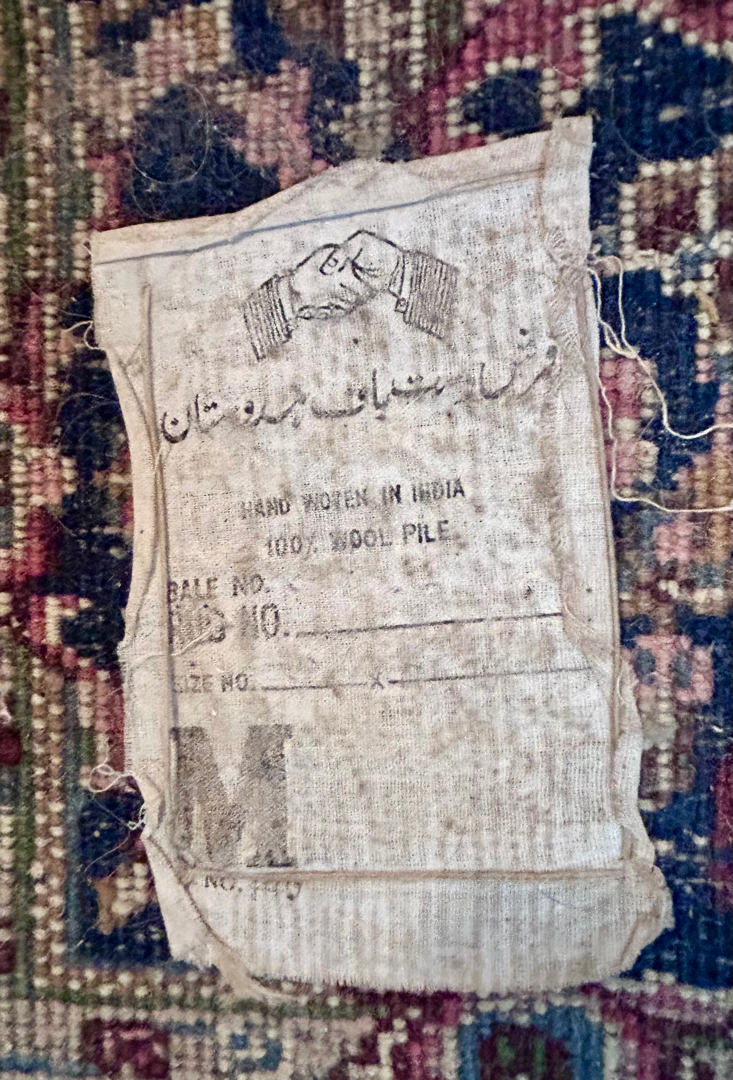 فرش دستباف هندوستان
HAND WOVEN IN INDIA
100% WOOL PILE
BALE NO.
RUG NO.
SIZE NO. X
M
NO.